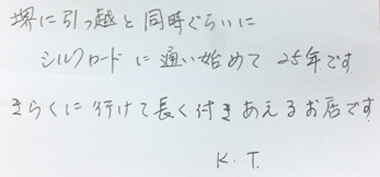 堺に引っ越と同時ぐらいに
シルクロードに通い始めて 25年です
きらくに行けて長く付きあえるお店です
K.T.